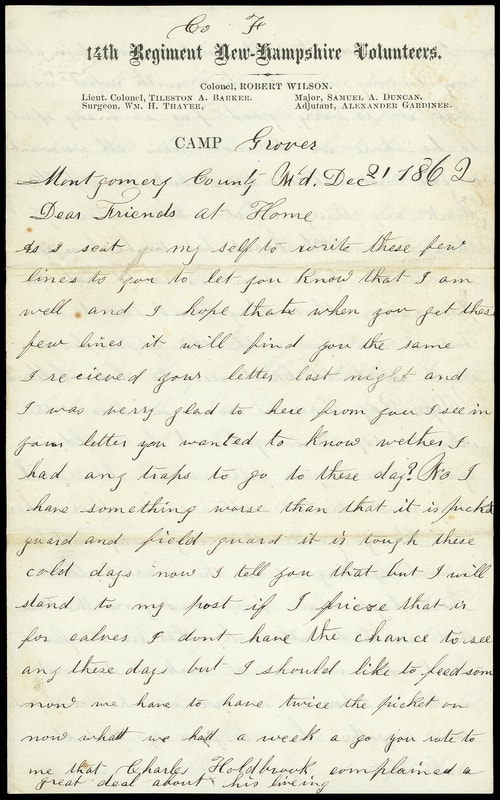 Co F
14th Regiment New-Hampshire Volunteers.
Colonel, ROBERT WILSON.
Lieut. Colonel, TILESTON A. BARKER. Major, SAMUEL A. DUNCAN.
Surgeon, WM. H. THAYER, Adjutant, ALEXANDER GARDINER.
CAMP Grover
Montgomery County Md. Dec 21 1862
Dear Friends at Home
As I seat my self to write these few
lines to you to let you know that I am
well and I hope thats when you get these
few lines it will find you the same
I recieved your letter last night and
I was verry glad to here from you I see in
your letter you wanted to know wether I
had any traps to go to these day? No I
have something worse than that it is picket
guard and field guard it is tough these
cold days now I tell you that but I will
stand to my post if I frieze that is
for calves I dont have the chance to see
any these days but I should like to feed som
now we have to have twice the picket on
now whatt we had a week a go you rote to
me that Charles Holdbrook complained a
great deal about his liveing